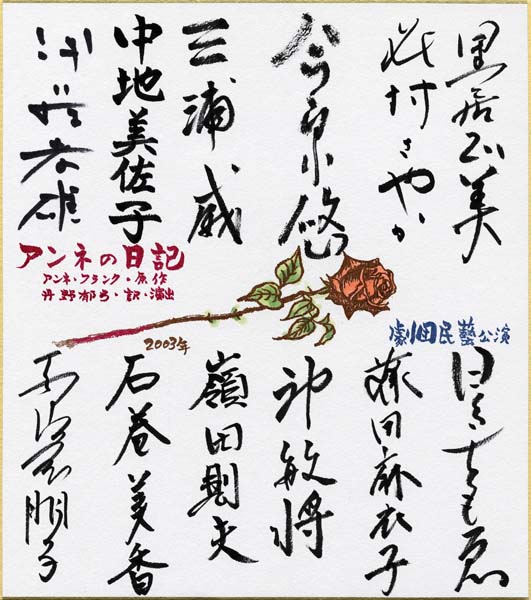 里居正美
花村さやか
今泉悠
三浦威
中地美佐子
伊藤孝雄
アンネの日記
アンネ・フランク・原作
丹野郁弓・訳・演出
2003年
劇団民藝公演
日色ともゑ
藤田麻衣子
神敏将
嶺田則夫
石巻美香